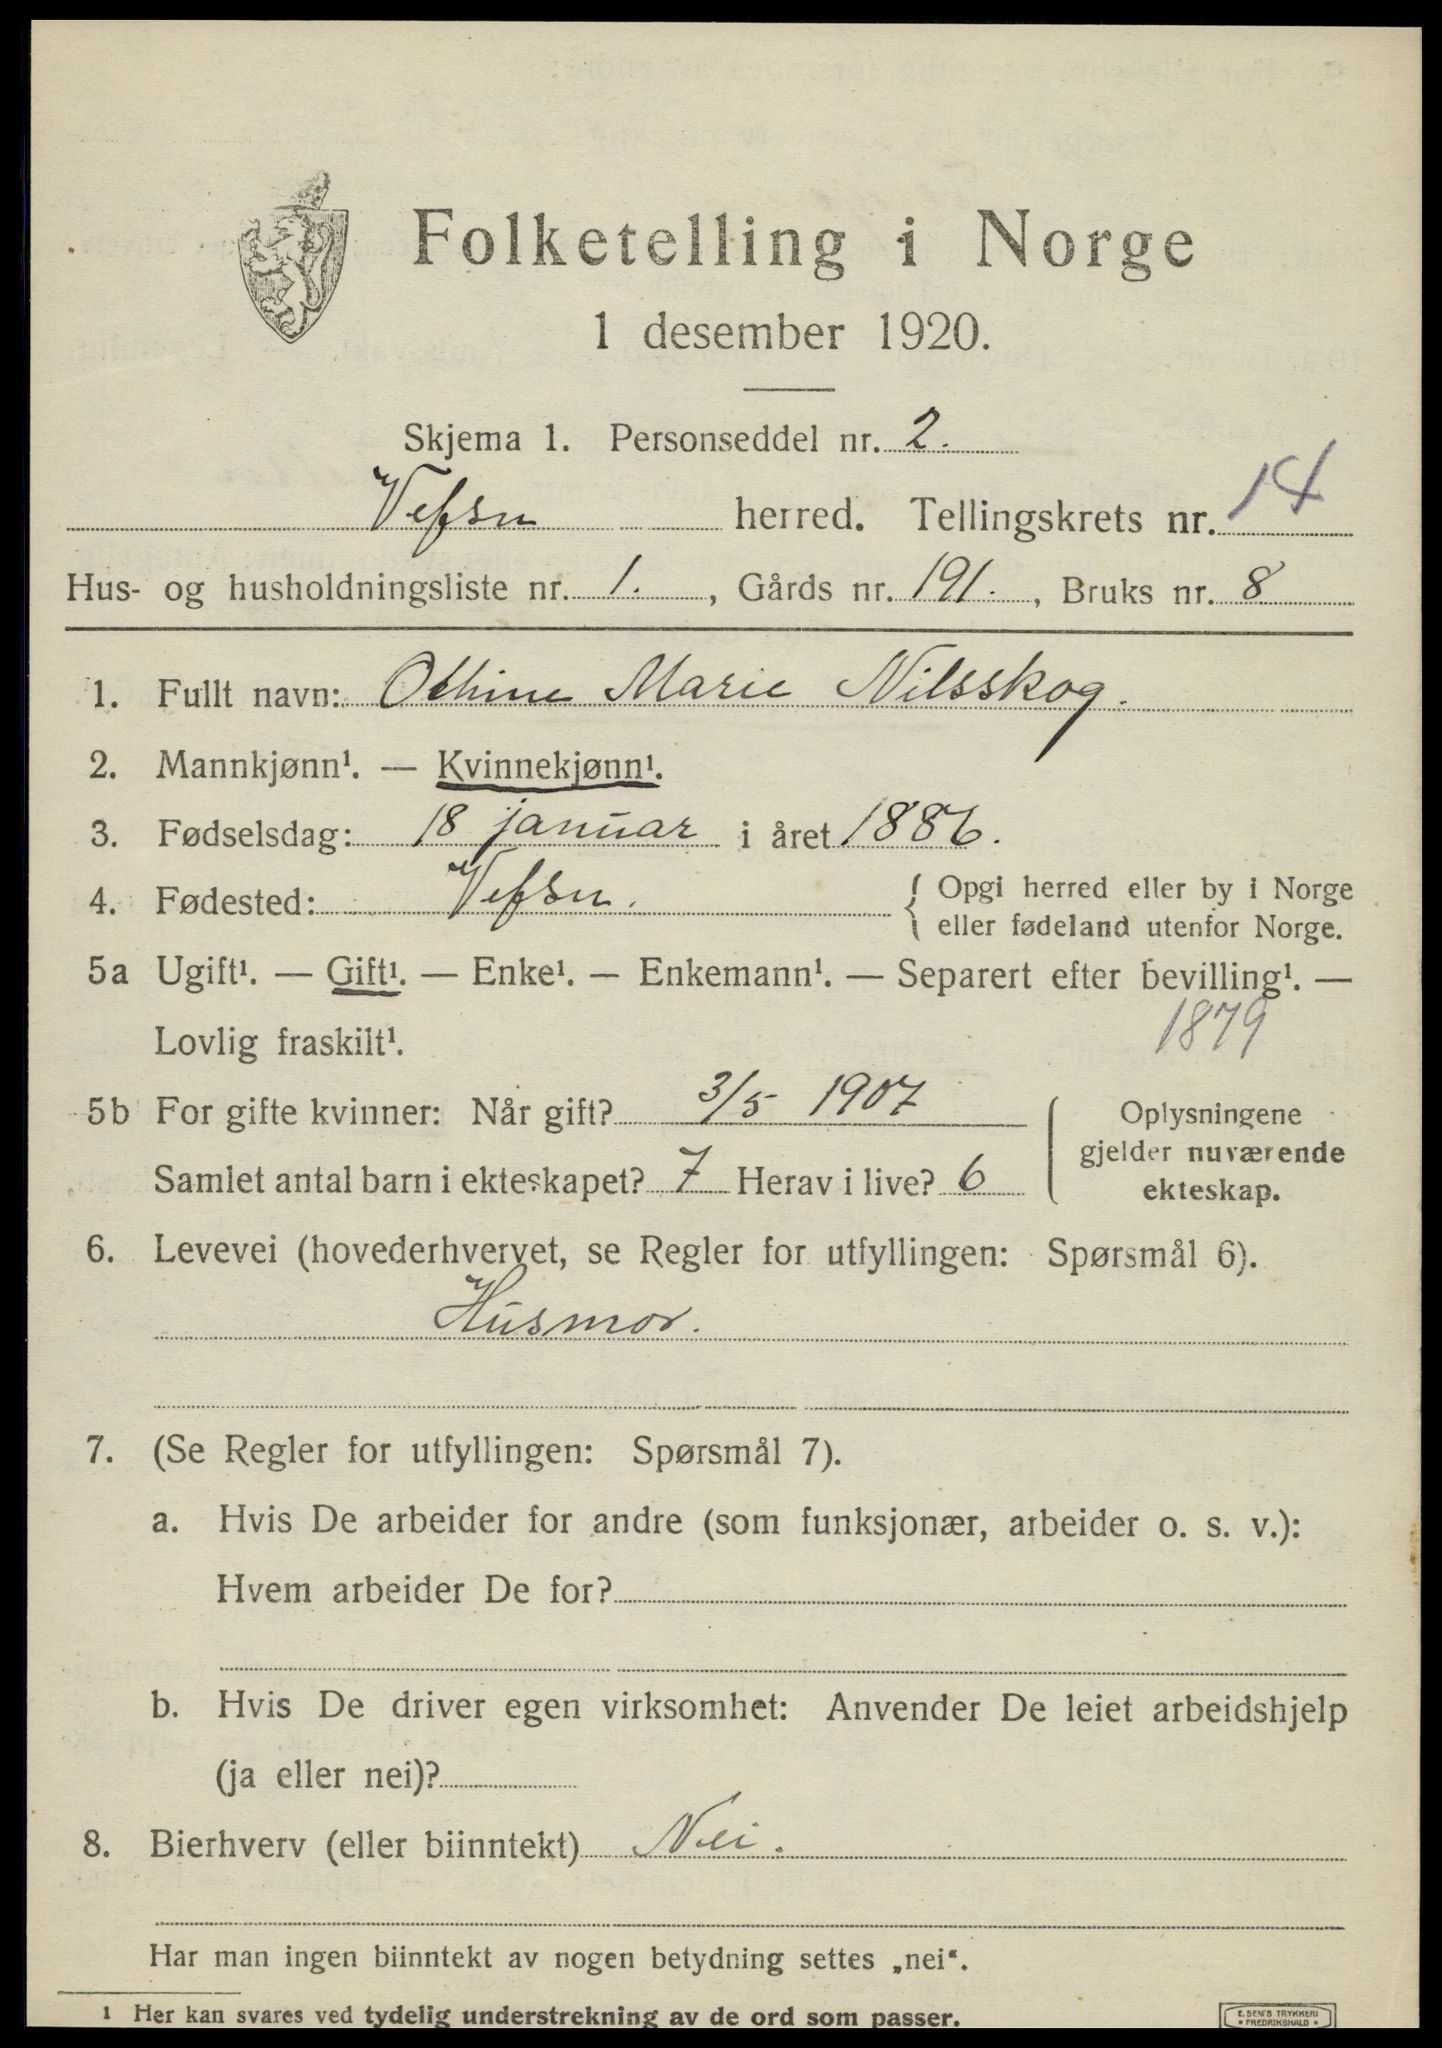 Folketelling i Norge
1 desember 1920.
Skjema 1. Personseddel nr. 2.
Vefsn herred. Tellingskrets nr. 14
Hus- og husholdningsliste nr. 1., Gårds nr. 191., Bruks nr. 8
1. Fullt navn: Othine Marie Nilsskog.
2. Mannkjønn¹. — Kvinnekjønn¹.
3. Fødselsdag: 18 januar i året 1886.
4. Fødested: Vefsn. { Opgi herred eller by i Norge
eller fødeland utenfor Norge.
5a Ugift¹. — Gift¹. — Enke¹. — Enkemann¹. — Separert efter bevilling¹. —
Lovlig fraskilt¹. 1879
5b For gifte kvinner: Når gift? 3/5 1907
Samlet antal barn i ekteskapet? 7 Herav i live? 6
Oplysningene
gjelder nuværende
ekteskap.
6. Levevei (hovederhvervet, se Regler for utfyllingen: Spørsmål 6).
Husmor.
7. (Se Regler for utfyllingen: Spørsmål 7).
a. Hvis De arbeider for andre (som funksjonær, arbeider o. s. v.):
Hvem arbeider De for?
b. Hvis De driver egen virksomhet: Anvender De leiet arbeidshjelp
(ja eller nei)?
8. Bierhverv (eller biinntekt) Nei.
Har man ingen biinntekt av nogen betydning settes „nei“.
1 Her kan svares ved tydelig understrekning av de ord som passer.
E. SEM'S TRYKKERI
• FREDRIKSHALD •